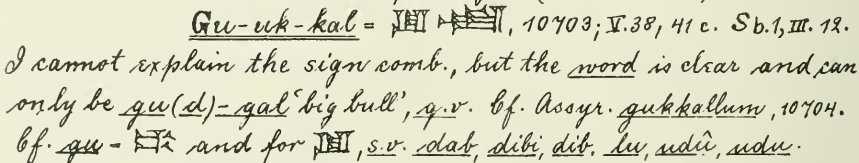 Gu-uk-kal = 𒇻 𒄾, 10703; V.38, 41 c. Sb.1, III. 12.
I cannot explain the sign comb., but the word is clear and can
only be gu(d)-gal 'big bull', q.v. Cf. Assyr. gukkallum, 10704.
Cf. gu = 𒄞 and for 𒇻, s.v. dab, dibi, dib, lu, udû, udu.